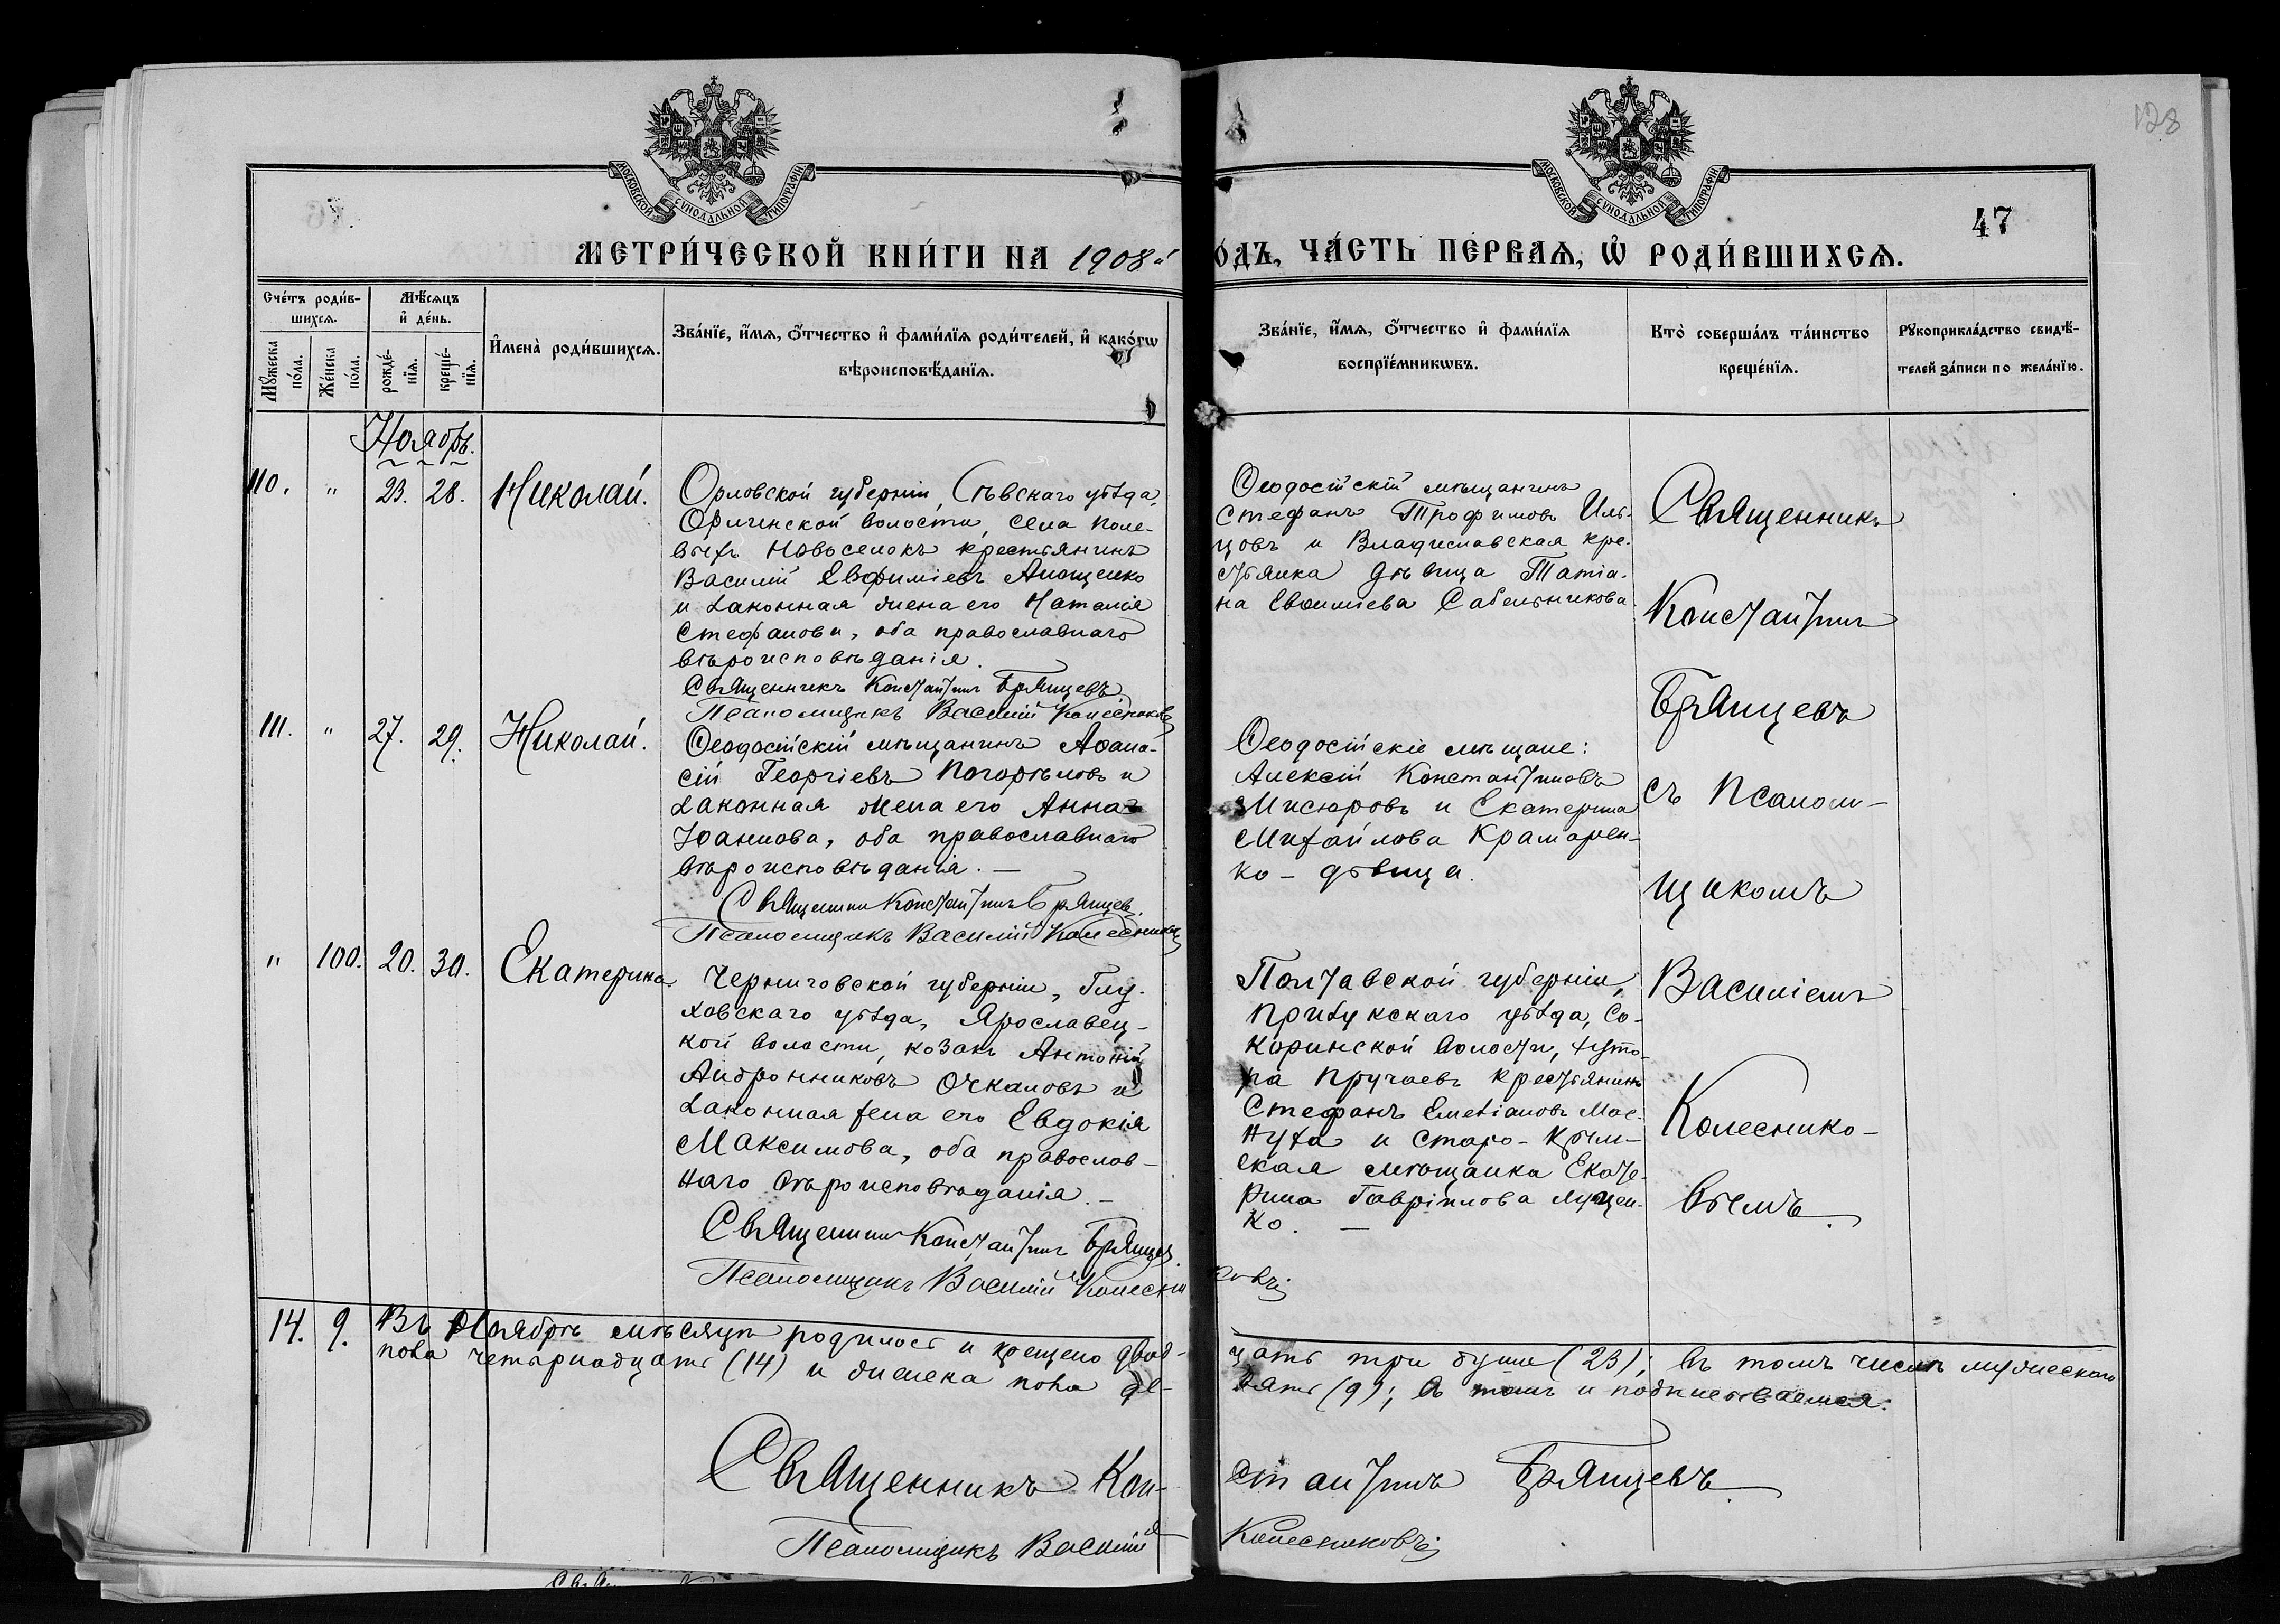 128
МОСКОВСКОЙ СѴНОДАЛЬНОЙ ТИПОГРАФІИ
МОСКОВСКОЙ СѴНОДАЛЬНОЙ ТИПОГРАФІИ
47
МЕТРИ́ЧЕСКОЙ КНИ́ГИ НА 1908й
ОДЪ, ЧА́СТЬ ПЕ́РВАѦ, Ѡ҆ РОДИ́ВШИХСѦ.
Сче́тъ роди́в-
шихсѧ.
Мꙋ́жеска по́ла.
Же́нска по́ла.
Мѣ́сѧцъ
и҆ де́нь.
рожде́-
нїѧ.
креще́-
нїѧ.
И҆мена̀ роди́вшихсѧ.
Зва́нїе, и҆́мѧ, ѻ҆́тчество и҆ фами́лїѧ роди́телей, и҆ како́гѡ
вѣроисповѣ́данїѧ.
Зва́нїе, и҆́мѧ, ѻ҆́тчество и҆ фами́лїѧ
воспрїе́мникѡвъ.
Кто̀ соверша́лъ та́инство
креще́нїѧ.
Рꙋкоприкла́дство свидѣ́-
телей за́писи по жела́нїю.
Ноябрь.
110. " 23. 28. Николай.
Орловской губерніи, Сѣвскаго уѣзда,
волости, села Поле-
выхъ Новоселокъ крестьянинъ
Василій Евфиміевъ Анощенко
и законная жена его Наталія
Стефанова, оба православнаго
вѣроисповѣданія.
Священникъ Константинъ Брянцевъ
Псаломщикъ Василій Колесниковъ
Ѳеодосійскій мѣщанинъ
Стефанъ Трофимовъ Иль-
цовъ и Владиславская кре-
стьянка дѣвица Татіа-
на Сабельникова.
111. " 27. 29. Николай.
Ѳеодосійскій мѣщанинъ Аѳана-
сій Георгіевъ Погорѣловъ и
законная жена его Анна
Іоаннова, оба православнаго
вѣроисповѣданія. —
Священникъ Константинъ Брянцевъ.
Псаломщикъ Василій Колесниковъ
Ѳеодосійскіе мѣщане:
Алексій Константиновъ
Мисюровъ и Екатерина
Михайлова Крамарен-
ко - дѣвица.
" 100. 20. 30. Екатерина
Черниговской губерніи, Глу-
ховскаго уѣзда, Ярославец-
кой волости, козакъ Антоній
Андронниковъ Очкаловъ и
законная жена его Евдокія
Максимова, оба православ-
наго вѣроисповѣданія. —
Священникъ Константинъ Брянцевъ.
Псаломщикъ Василій Колесни
ковъ
Полтавской губерніи,
Прилукскаго уѣзда, Со-
каринской волости, хуто-
ра крестьянинъ
Стефанъ
и Старо-Крым-
ская мѣщанка Екате-
рина Гавріилова Луцен-
ко. —
Священникъ
Константинъ
Брянцевъ
съ псалом-
щикомъ
Василіемъ
Колеснико-
вымъ.
14. 9. Въ Ноябрѣ мѣсяцѣ родилось и крещено двад-
цать три души (23); въ томъ числѣ мужескаго
пола четырнадцать (14) и женска пола де-
вять (9); въ томъ и подписываемся.
Священникъ Кон-
стантинъ Брянцевъ.
Псаломщикъ Василій
Колесниковъ